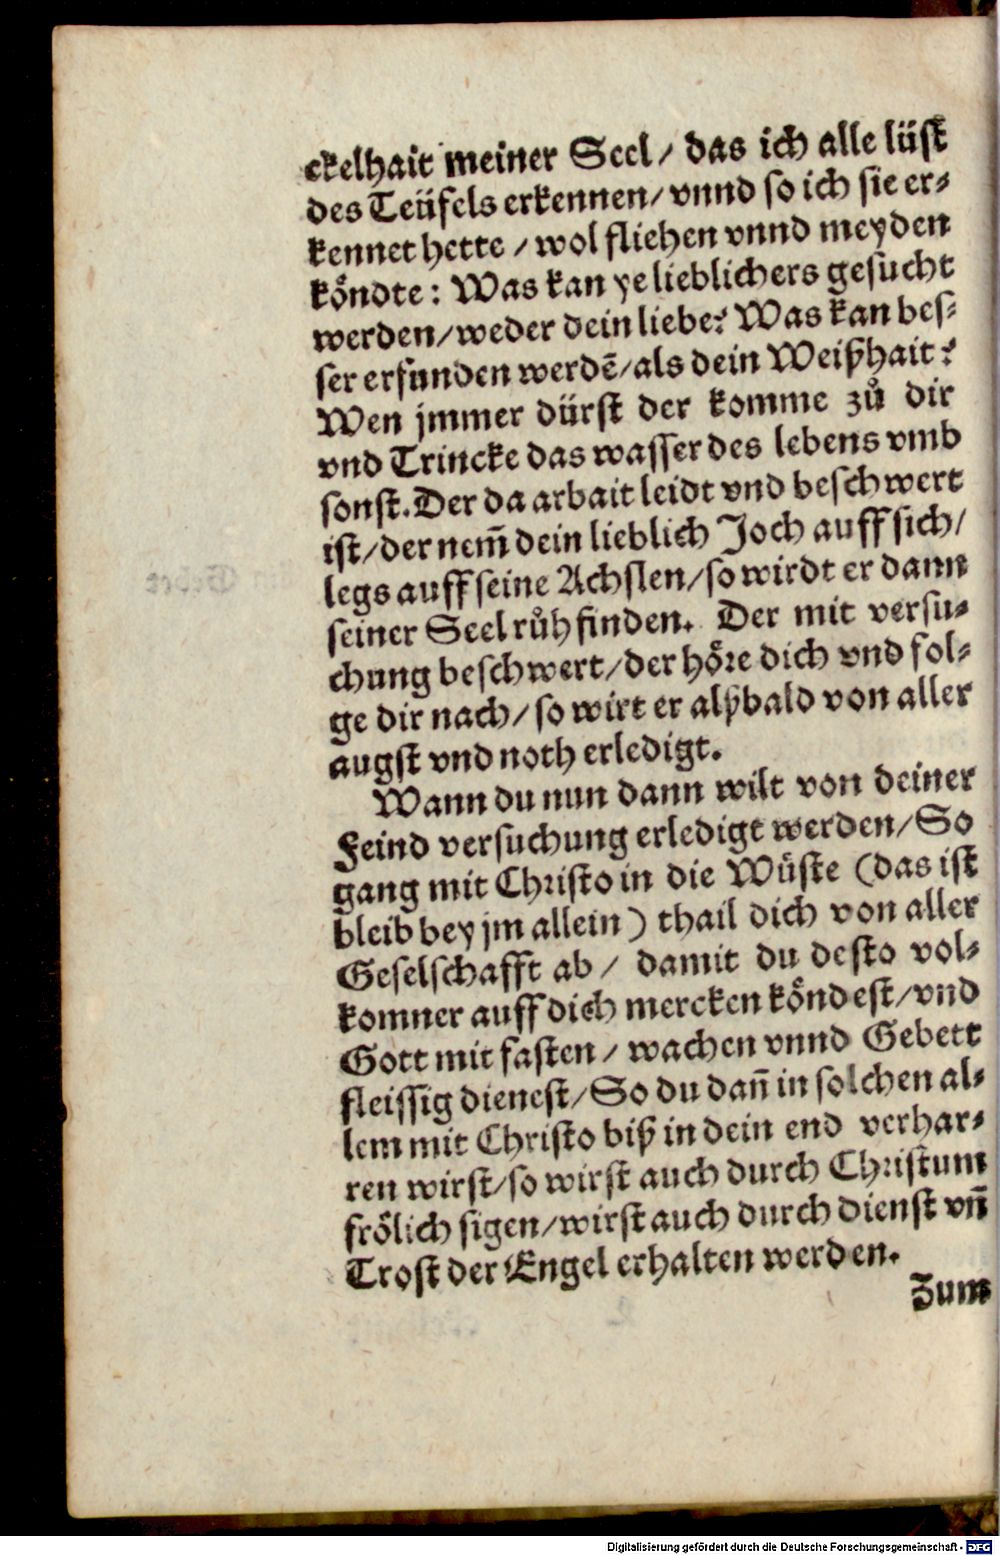 ckelhait meiner Seel / das ich alle lüst
des Teüfels erkennen / vnnd so ich sie er⸗
kennet hette / wol fliehen vnnd meyden
köndte : Was kan ye lieblichers gesucht
werden / weder dein liebe? Was kan bes⸗
ser erfunden werdē / als dein Weißhait?
Wen jmmer dürst der komme zů dir
vnd Trincke das wasser des lebens vmb
sonst. Der da arbait leidt vnd beschwert
ist / der nem̄ dein lieblich Joch auff sich /
legs auff seine Achslen / so wirdt er dann
seiner Seel růh finden. Der mit versu⸗
chung beschwert / der höre dich vnd fol⸗
ge dir nach / so wirt er alßbald von aller
augst vnd noth erledigt.
Wann du nun dann wilt von deiner
Feind versuchung erledigt werden / So
gang mit Christo in die Wüste (das ist
bleib bey jm allein) thail dich von aller
Geselschafft ab / damit du desto vol⸗
komner auff dich mercken köndest / vnd
Gott mit fasten / wachen vnnd Gebett
fleissig dienest / So du dan̄ in solchen al⸗
lem mit Christo biß in dein end verhar⸗
ren wirst / so wirst auch durch Christum
frölich sigen / wirst auch durch dienst vn̄
Trost der Engel erhalten werden.
Zum
Digitalisierung gefördert durch die Deutsche Forschungsgemeinschaft - DFG